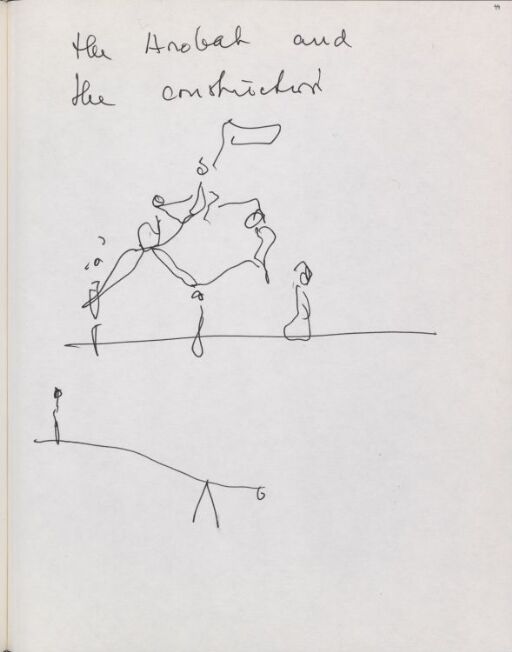 the Arobat and
the construction